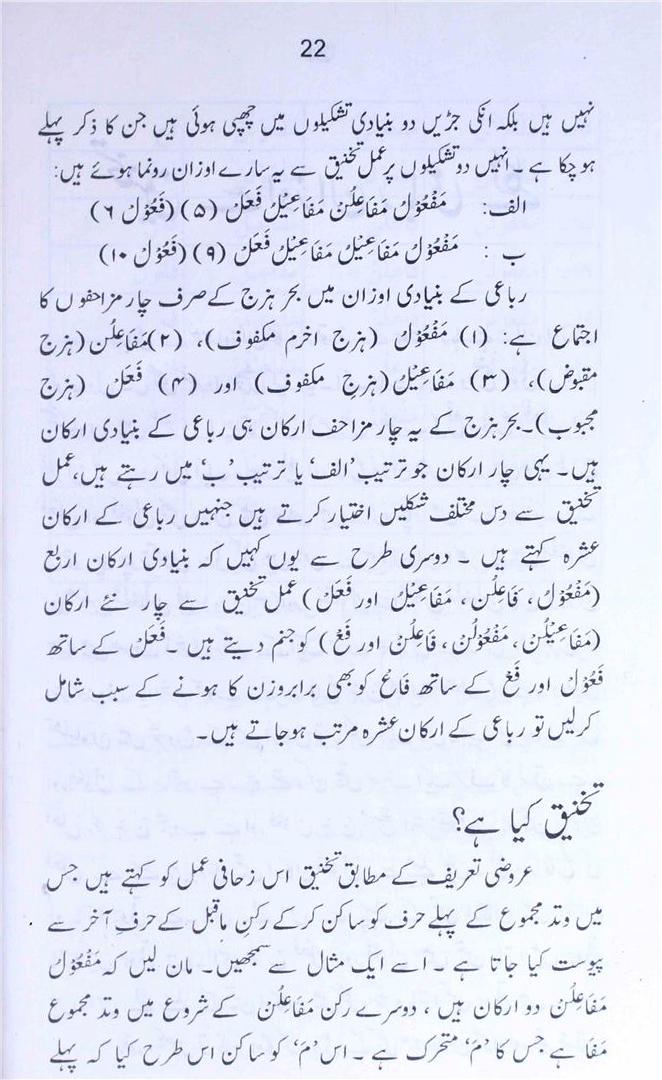 22
نہیں ہیں بلکہ انکی جڑیں دو بنیادی تشکیلوں میں چھپی ہوئی ہیں جن کا ذکر پہلے
ہو چکا ہے۔ انہیں دو تشکیلوں پر عمل تخنیق سے یہ سارے اوزان رونما ہوئے ہیں:
الف: مَفْعُوْلُ مَفَاعِلُنْ مَفَاعِیْلُ فَعَلْ (۵) (فَعُوْلْ ۶)
ب : مَفْعُوْلُ مَفَاعِیْلُ مَفَاعِیْلُ فَعَلْ (۹) (فَعُوْلْ ۱۰)
رباعی کے بنیادی اوزان میں بحر ہزج کے صرف چار مزاحفوں کا
اجتماع ہے: (۱) مَفْعُوْلُ (ہزج اخرم مکفوف)، (۲) مَفَاعِلُن (ہزج
مقبوض)، (۳) مَفَاعِیْلُ (ہزجِ مکفوف) اور (۴) فَعَلْ (ہزج
مجبوب)۔ بحر ہزج کے یہ چار مزاحف ارکان ہی رباعی کے بنیادی ارکان
ہیں۔ یہی چار ارکان جو ترتیب ’الف‘ یا ترتیب ’ب‘ میں رہتے ہیں، عمل
تخنیق سے دس مختلف شکلیں اختیار کرتے ہیں جنہیں رباعی کے ارکان
عشرہ کہتے ہیں ۔ دوسری طرح سے یوں کہیں کہ بنیادی ارکان اربع
(مَفْعُوْلُ، فَاعِلُن، مَفَاعِیْلُ اور فَعَلْ) عمل تخنیق سے چار نئے ارکان
(مَفَاعِیْلُن، مَفْعُوْلُنْ، فَاعِلُنْ اور فَعْ) کو جنم دیتے ہیں ۔ فَعَلْ کے ساتھ
فَعُوْلْ اور فَعْ کے ساتھ فَاعْ کو بھی برابر وزن کا ہونے کے سبب شامل
کرلیں تو رباعی کے ارکان عشرہ مرتب ہو جاتے ہیں۔
تخنیق کیا ہے؟
عروضی تعریف کے مطابق تخنیق اس زحافی عمل کو کہتے ہیں جس
میں وتد مجموع کے پہلے حرف کو ساکن کرکے رکن ماقبل کے حرفِ آخر سے
پیوست کیا جاتا ہے ۔ اسے ایک مثال سے سمجھیں۔ مان لیں کہ مَفْعُوْلُ
مَفَاعِلُنْ دو ارکان ہیں ، دوسرے رکن مَفَاعِلُنْ کے شروع میں وتد مجموع
مَفَا ہے جس کا ’مَ‘ متحرک ہے ۔ اس ’مَ‘ کو ساکن اس طرح کیا کہ پہلے